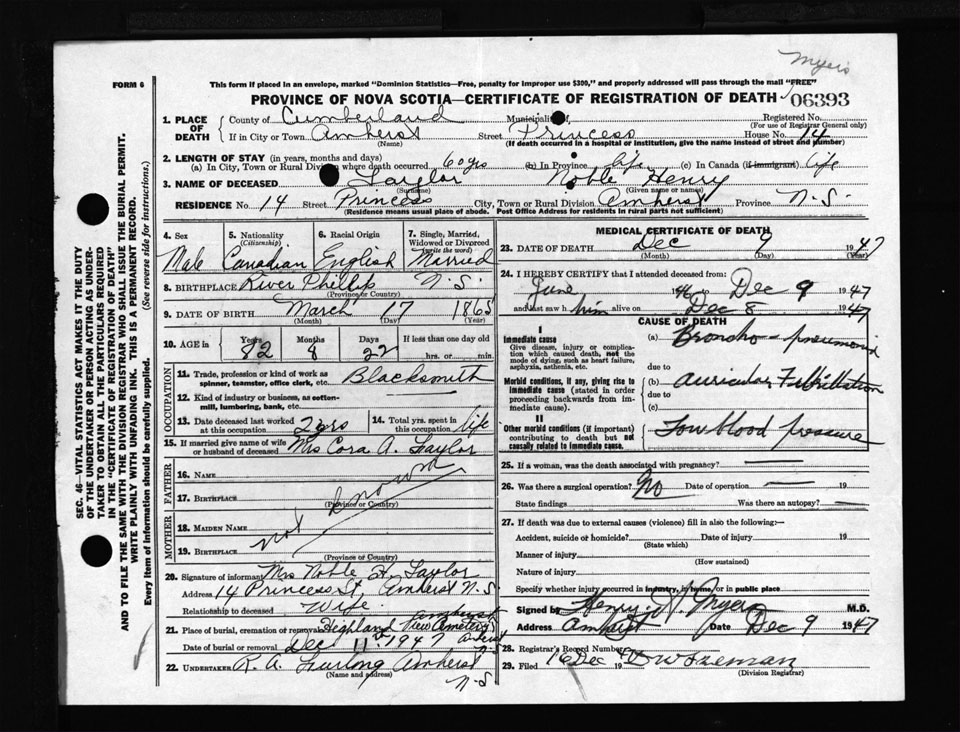 Myers
FORM 6
This form if placed in an envelope, marked "Dominion Statistics—Free, penalty for improper use $300," and properly addressed will pass through the mail "FREE"
PROVINCE OF NOVA SCOTIA—CERTIFICATE OF REGISTRATION OF DEATH 06393
1. PLACE OF DEATH County of Cumberland Municipality of Registered No.
(For use of Registrar General only)
If in City or Town Amherst Street Princess House No. 14
(Name) (If death occurred in a hospital or institution, give the name instead of street and number)
2. LENGTH OF STAY (in years, months and days)
(a) In City, Town or Rural Division where death occurred 60 yrs (b) In Province life (c) In Canada (if immigrant) life
3. NAME OF DECEASED Taylor Noble Henry
(Surname) (Given name or names)
RESIDENCE No. 14 Street Princess City, Town or Rural Division Amherst Province N.S.
(Residence means usual place of abode. Post Office Address for residents in rural parts not sufficient)
4. Sex 5. Nationality (Citizenship) 6. Racial Origin 7. Single, Married, Widowed or Divorced (write the word)
Male Canadian English Married
8. BIRTHPLACE River Phillip N.S.
(Province or Country)
9. DATE OF BIRTH March 17 1865
(Month) (Day) (Year)
10. AGE in Years Months Days If less than one day old
82 8 22 hrs. or min.
OCCUPATION
11. Trade, profession or kind of work as spinner, teamster, office clerk, etc. Blacksmith
12. Kind of industry or business, as cotton-mill, lumbering, bank, etc.
13. Date deceased last worked at this occupation 2 yrs 14. Total yrs. spent in this occupation life
15. If married give name of wife or husband of deceased Mrs Cora A. Taylor
FATHER
16. Name
17. Birthplace
(Province or Country)
MOTHER
18. Maiden Name
19. Birthplace
(Province or Country)
not known
20. Signature of informant Mrs Noble H. Taylor
Address 14 Princess St, Amherst N.S.
Relationship to deceased Wife
21. Place of burial, cremation or removal Highland View Cemetery Amherst
Date of burial or removal Dec 11th 1947 Amherst
22. UNDERTAKER R. A. Furlong Amherst
(Name and address)
N.S
MEDICAL CERTIFICATE OF DEATH
23. DATE OF DEATH Dec 9 1947
(Month) (Day) (Year)
24. I HEREBY CERTIFY that I attended deceased from:
June 46 to Dec 9 1947
and last saw him alive on Dec 8 1947
CAUSE OF DEATH
I
Immediate cause
Give disease, injury or complication which caused death, not the mode of dying, such as heart failure, asphyxia, asthenia, etc.
(a) Broncho-pneumonia
due to
Morbid conditions, if any, giving rise to immediate cause (stated in order proceeding backwards from immediate cause).
(b) Auricular Fibrillation
due to
(c)
II
Other morbid conditions (if important) contributing to death but not causally related to immediate cause.
Low blood pressure
25. If a woman, was the death associated with pregnancy?
26. Was there a surgical operation? No Date of operation 19
State findings Was there an autopsy?
27. If death was due to external causes (violence) fill in also the following:—
Accident, suicide or homicide? Date of injury 19
(State which)
Manner of injury
(How sustained)
Nature of injury
Specify whether injury occurred in industry, in home, or in public place
Signed by Henry J. Myers M.D.
Address Amherst Date Dec 9 1947
28. Registrar's Record Number
29. Filed 16 Dec 19
(Division Registrar)
SEC. 46—VITAL STATISTICS ACT MAKES IT THE DUTY
OF THE UNDERTAKER OR PERSON ACTING AS UNDER-
TAKER TO OBTAIN ALL THE PARTICULARS REQUIRED
IN THE "CERTIFICATE OF REGISTRATION OF DEATH"
AND TO FILE THE SAME WITH THE DIVISION REGISTRAR WHO SHALL ISSUE THE BURIAL PERMIT.
WRITE PLAINLY WITH UNFADING INK. THIS IS A PERMANENT RECORD.
Every item of information should be carefully supplied. (See reverse side for instructions.)